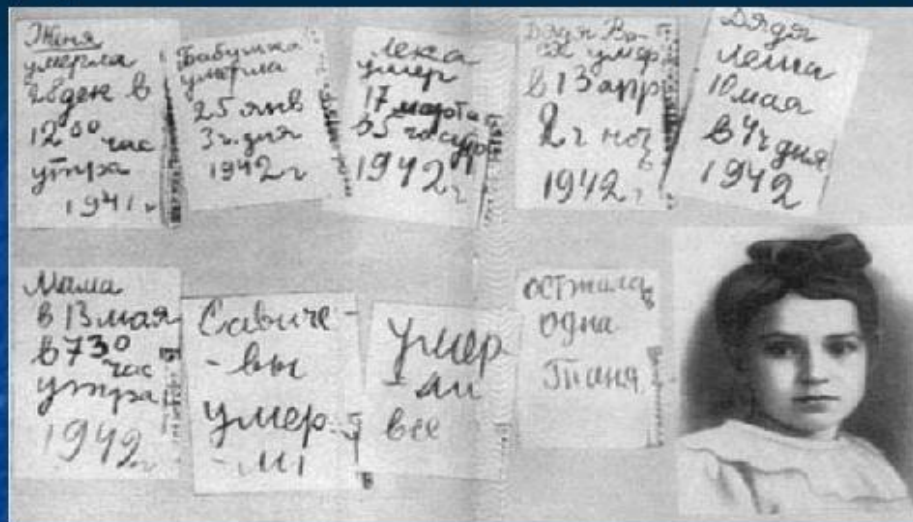 Женя
умерла
28 ден в
12⁰⁰ час
утра
1941 г
Бабушка
умерла
25 янв
3 ч. дня
1942 г
Лека
умер
17 марта
в 5 час утр
1942 г
Дядя Ва-
ся умер
в 13 апр
2 ч ноч
1942 г
Дядя
Леша
10 мая
в 4 ч дня
1942
Мама
в 13 мая
в 7³⁰ час
утра
1942 г
Савиче-
-вы
умер-
-ли
Умер
-ли
все
осталась
одна
Таня